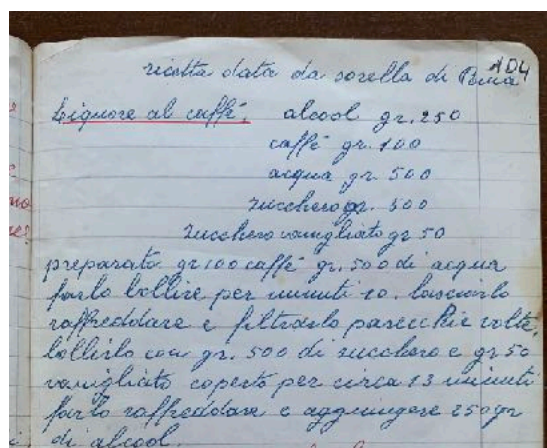 104
ricetta data da sorella di
Liquore al caffè. alcool gr. 250
caffè gr. 100
acqua gr. 500
zucchero gr. 500
zucchero vanigliato gr 50
preparato gr 100 caffè gr. 500 di acqua
farlo bollire per minuti 10. lasciarlo
raffreddare e filtrarlo parecchie volte,
bollirlo con gr. 500 di zucchero e gr 50
vanigliato coperto per circa 13 minuti
farlo raffreddare e aggiungere 250 gr
di alcool.